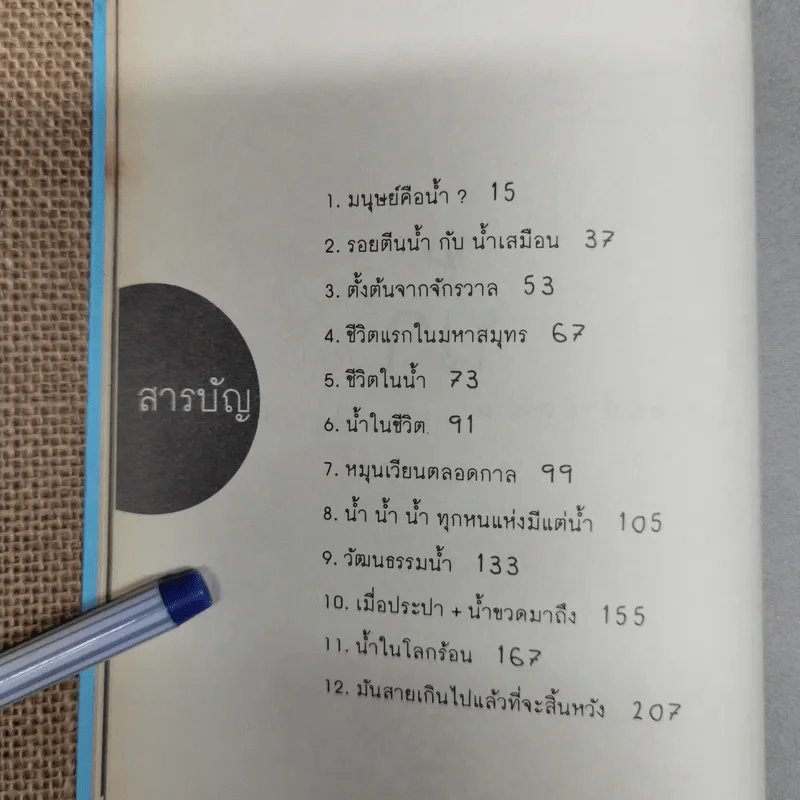 สารบัญ
1. มนุษย์คือน้ำ ? 15
2. รอยตีนน้ำ กับ น้ำเสมือน 37
3. ตั้งต้นจากจักรวาล 53
4. ชีวิตแรกในมหาสมุทร 67
5. ชีวิตในน้ำ 73
6. น้ำในชีวิต 91
7. หมุนเวียนตลอดกาล 99
8. น้ำ น้ำ น้ำ ทุกหนแห่งมีแต่น้ำ 105
9. วัฒนธรรมน้ำ 133
10. เมื่อประปา + น้ำขวดมาถึง 155
11. น้ำในโลกร้อน 167
12. มันสายเกินไปแล้วที่จะสิ้นหวัง 207